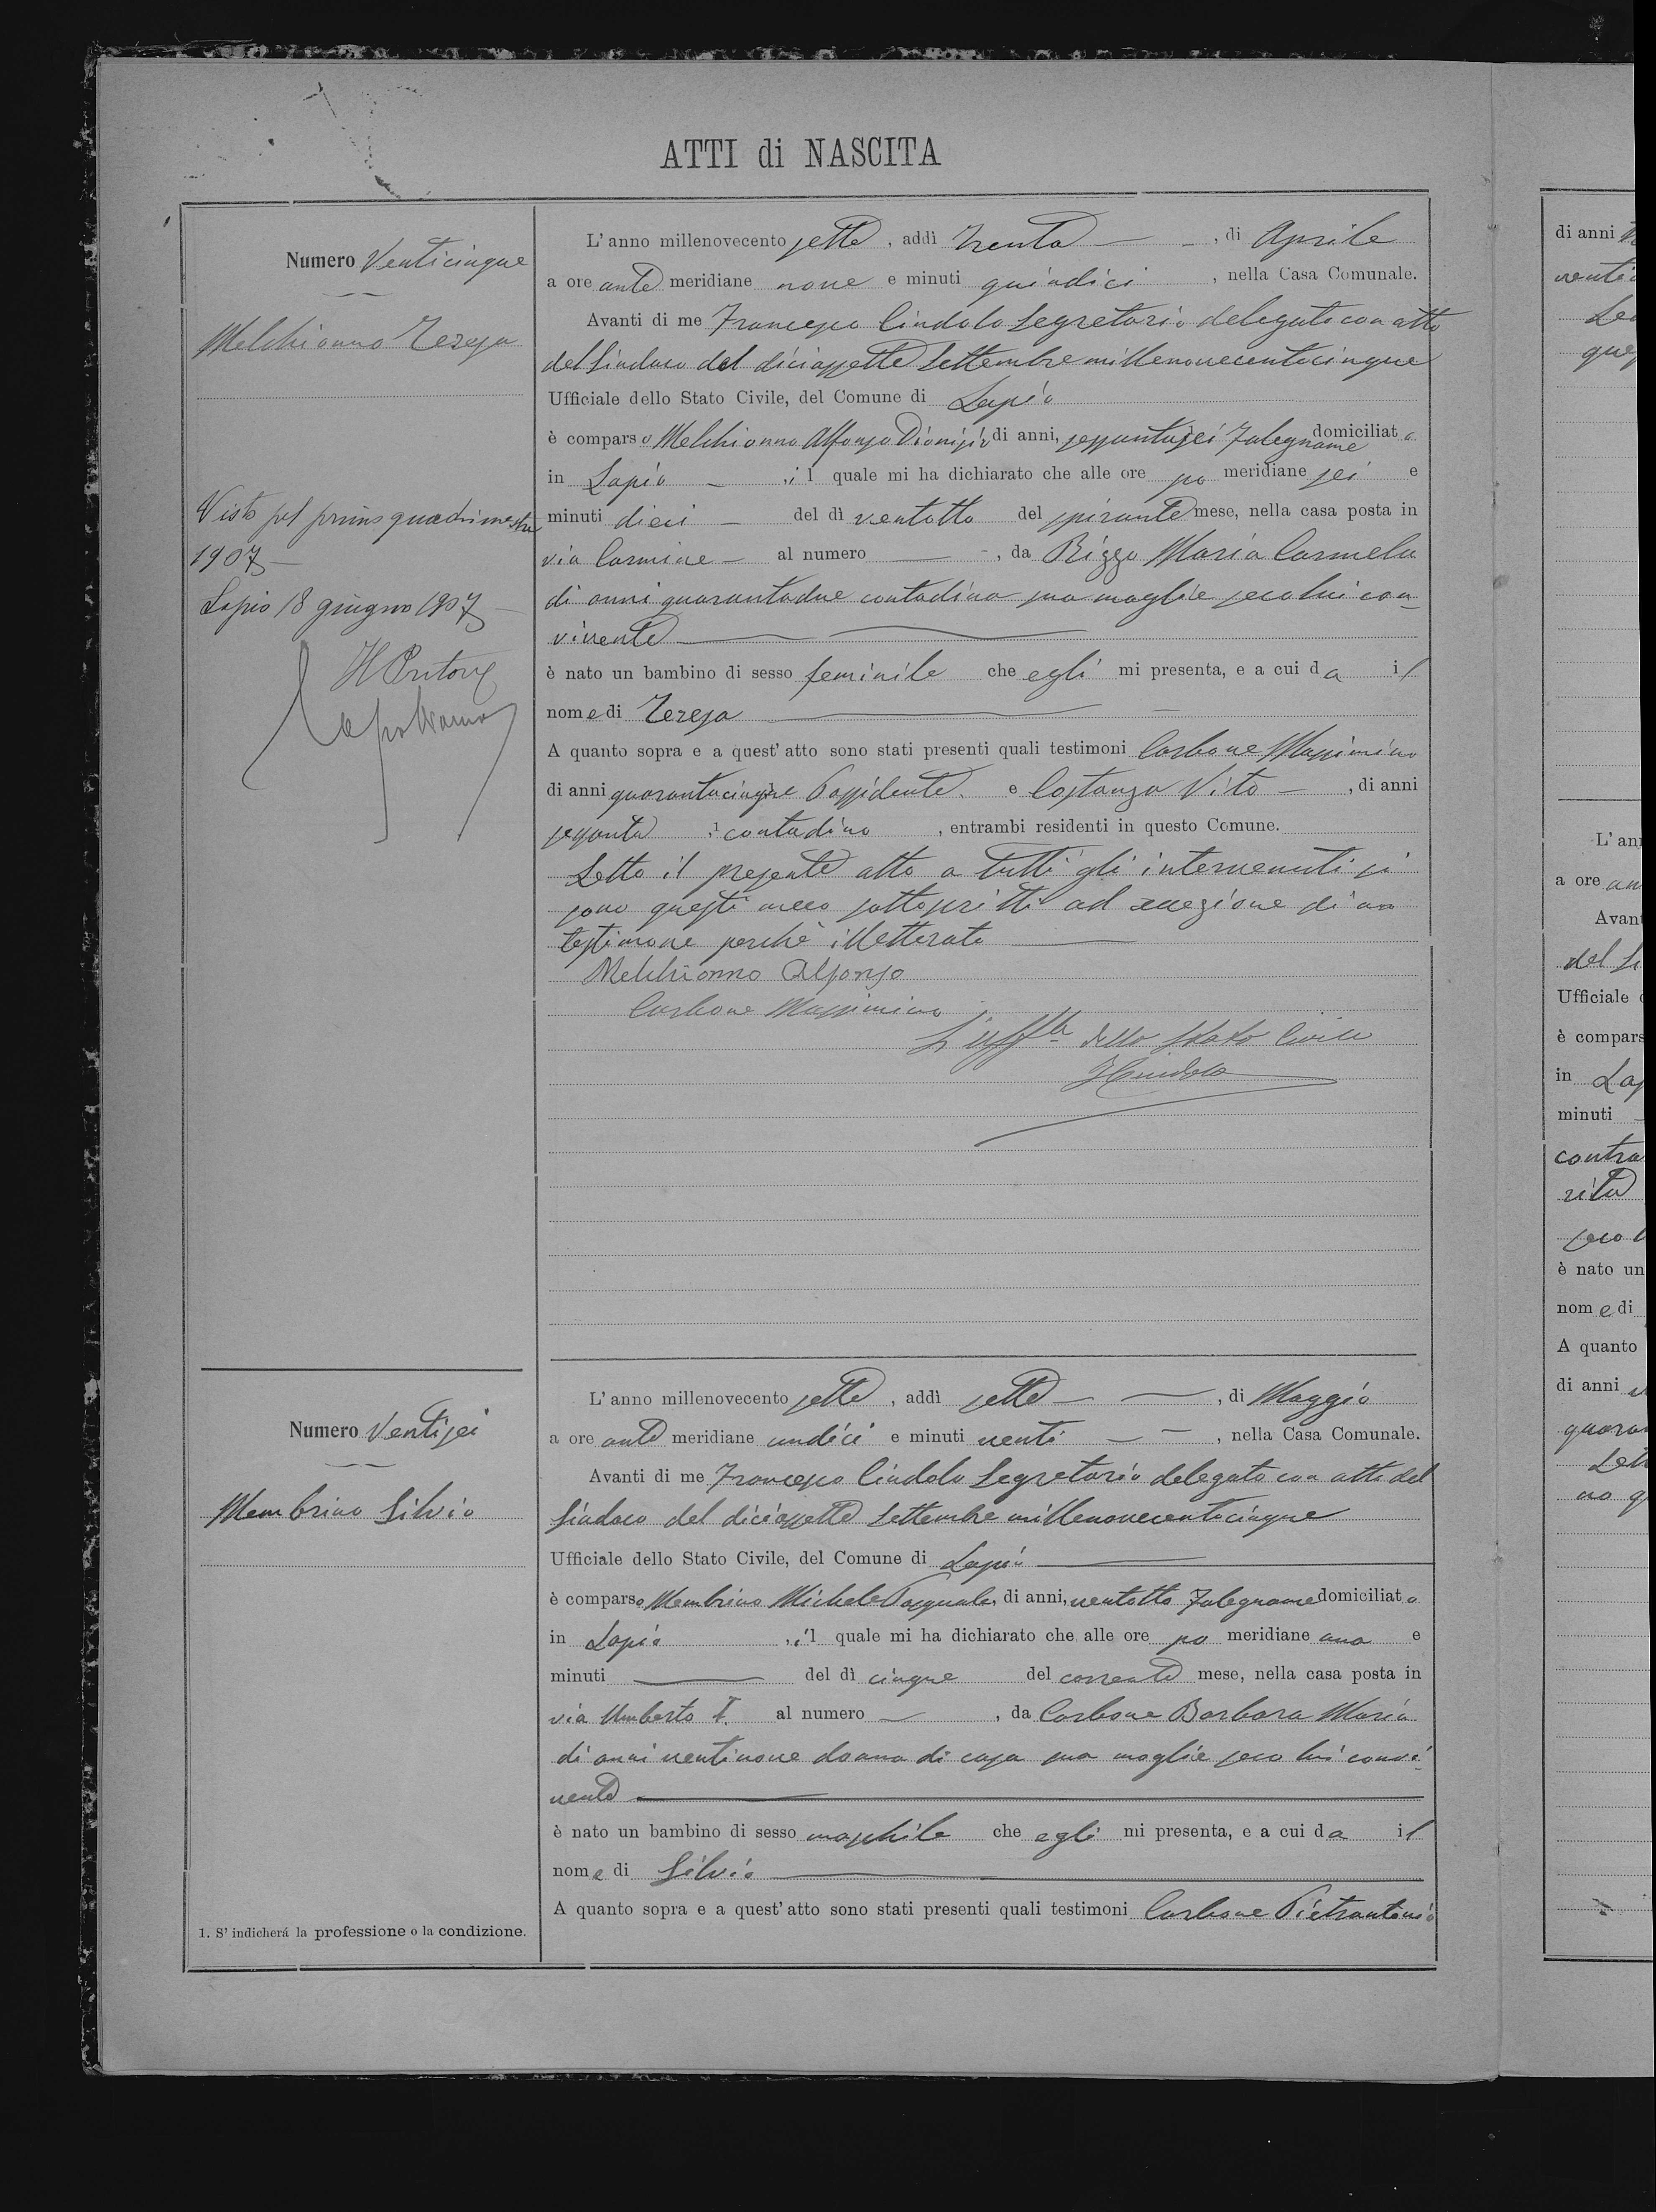 ATTI di NASCITA
Numero Venticinque
Melchionno Teresa
Visto pel primo quadrimestre
1907
Lapio 18 giugno 1907
Il Pretore
L'anno millenovecento sette, addì trenta, di Aprile
a ore ante meridiane nove e minuti quindici, nella Casa Comunale.
Avanti di me Francesco Cindolo Segretario delegato con atto
del Sindaco del diciassette Settembre millenovecentocinque
Ufficiale dello Stato Civile, del Comune di Lapio
è comparso Melchionno Alfonso Dionisio di anni, sessantasei Falegname domiciliato
in Lapio, il quale mi ha dichiarato che alle ore po meridiane sei e
minuti dieci del dì ventotto del spirante mese, nella casa posta in
via Carmine al numero —, da Rizzo Maria Carmela
di anni quarantadue contadina sua moglie seco lui con-
vivente
è nato un bambino di sesso feminile che egli mi presenta, e a cui da il
nome di Teresa
A quanto sopra e a quest'atto sono stati presenti quali testimoni Carbone Massimino
di anni quarantacinque Possidente e Costanza Vito, di anni
sessanta, contadino, entrambi residenti in questo Comune.
Letto il presente atto a tutti gli intervenuti si
sono questi meco sottoscritti ad eccezione di un
testimone perchè illetterato
Melchionno Alfonso
Carbone Massimino
L'uff.le dello Stato Civile
FCindolo
Numero Ventisei
Membrino Silvio
L'anno millenovecento sette, addì sette, di Maggio
a ore ante meridiane undici e minuti venti, nella Casa Comunale.
Avanti di me Francesco Cindolo Segretario delegato con atto del
Sindaco del diciassette Settembre millenovecentocinque
Ufficiale dello Stato Civile, del Comune di Lapio
è comparso Membrino Michele Pasquale, di anni, ventotto Falegname domiciliato
in Lapio, il quale mi ha dichiarato che alle ore po meridiane una e
minuti — del dì cinque del corrente mese, nella casa posta in
via Umberto I. al numero —, da Carbone Barbara Maria
di anni ventinove donna di casa sua moglie seco lui convi-
vente
è nato un bambino di sesso maschile che egli mi presenta, e a cui da il
nome di Silvio
A quanto sopra e a quest'atto sono stati presenti quali testimoni Carbone Pietrantonio
1. S'indicherá la professione o la condizione.
di anni
L'an
a ore
Avan
del
Ufficiale
è compars
in
minuti
è nato un
nome di
A quanto
di anni